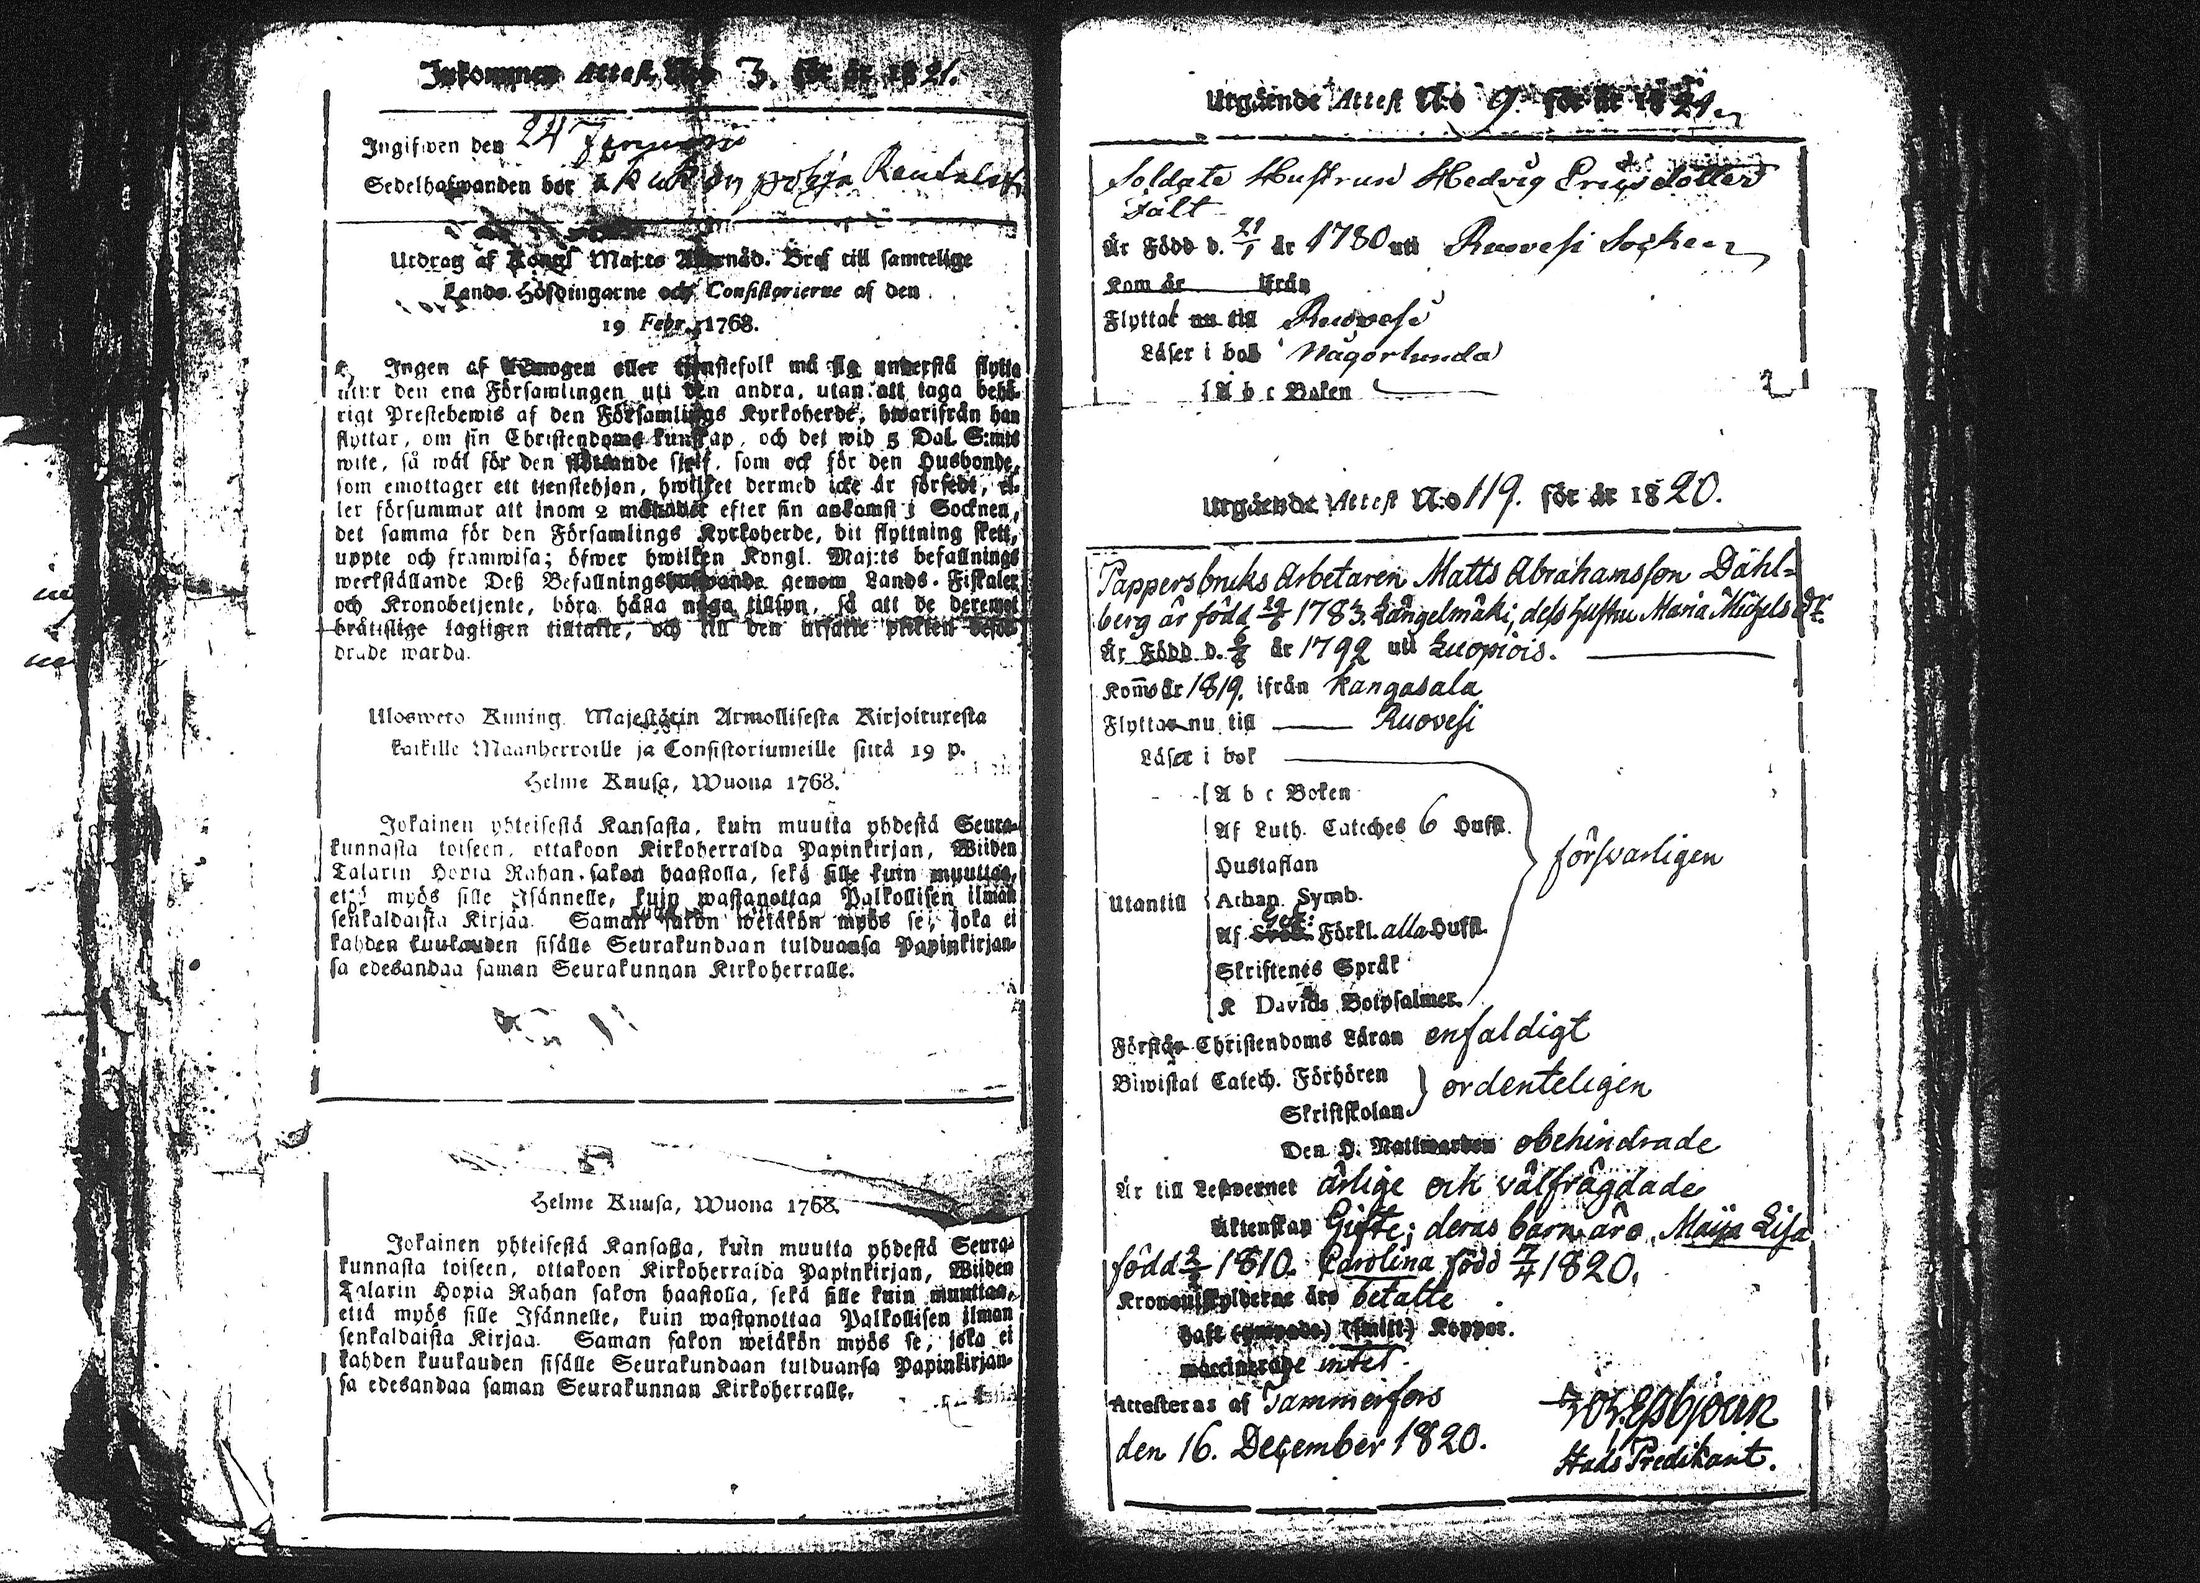 Inkommen Attest No 3. för år 1821.
Ingifwen den 24 Januari
Sedelhafwanden bor
Utdrag af Kongl Maj:ts Allernåd. Bref till samtelige
Lands-Höfdingarne och Consistorierne af den
19 Febr. 1768.
Ingen af Allmogen eller tjenstefolk må sig understå flytta
utur den ena Församlingen uti den andra, utan att taga behö-
rigt Prestebewis af den Församlings Kyrkoherde, hwarifrån han
flyttar, om sin Christendoms kunskap, och det wid 5 Dal. S:mts
wite, så wäl för den flyttande sjelf, som ock för den Husbonde,
som emottager ett tjenstehjon, hwilket dermed icke är försedt, el-
ler försummar att inom 2 månader efter sin ankomst i Socknen,
det samma för den Församlings Kyrkoherde, dit flyttning skett,
uppte och framwisa; öfwer hwilken Kongl. Maj:ts befallnings
werkställande Deß Befallningshafwande genom Lands-Fiskaler
och Kronobetjente, böra hålla noga tillsyn, så att de deremot
bråttslige lagligen tilltalte, och till den utsatte plikten befor-
drade warda.
Ulosweto Kuning. Majestätin Armollisesta Kirjoituxesta
kaikille Maanherroille ja Consistoriumeille siitä 19 p.
Helme Kuusa, Wuona 1768.
Jokainen yhteisestä Kansasta, kuin muutta yhdestä Seura-
kunnasta toiseen, ottakoon Kirkoherralda Papinkirjan, Wiiden
Talarin Hopia Rahan sakon haastolla, sekä sille kuin muuttaa,
että myös sille Isännelle, kuin wastanottaa Palkollisen ilman
senkaldaista Kirjaa. Saman sakon wetäkön myös se, joka ei
kahden kuukauden sisälle Seurakundaan tulduansa Papinkirjan-
sa edesandaa saman Seurakunnan Kirkoherralle.
Helme Kuusa, Wuona 1768.
Jokainen yhteisestä Kansasta, kuin muutta yhdestä Seura-
kunnasta toiseen, ottakoon Kirkoherralda Papinkirjan, Wiiden
Talarin Hopia Rahan sakon haastolla, sekä sille kuin muuttaa,
että myös sille Isännelle, kuin wastanottaa Palkollisen ilman
senkaldaista Kirjaa. Saman sakon wetäkön myös se, joka ei
kahden kuukauden sisälle Seurakundaan tulduansa Papinkirjan-
sa edesandaa saman Seurakunnan Kirkoherralle.
Utgående Attest No 9 för år 1821
Soldate Hustrun Hedvig Ericsdotter
Fält
Är Född d. 21/1 år 1780 uti Ruovesi Socken
Kom år ifrån
Flyttat nu till Ruovesi
Läser i bok någorlunda
A b c Boken
Utgående Attest No 119. för år 1820.
Pappersbruks Arbetaren Matts Abrahamsson Dahl-
berg är född 1783. Längelmäki; dess hustru Maria Michelsdr.
Är Född d. år 1792 uti Luopiois.
Kom år 1819. ifrån Kangasala
Flyttar nu till Ruovesi
Läser i bok
A b c Boken
Af Luth. Cateches 6 Hufst.
Hustaflan
försvarligen
Utantill Athan. Symb.
Af Förkl. alla Hufst.
Skriftenes Språk
K Davids Botpsalmer.
Förstår Christendoms Läran enfaldigt
Biwistat Catech. Förhören
Skriftskolan ordenteligen
Den H. Nattwarden obehindrade
Är till Lefwernet ärlige och välfrägdade
Äktenskap Gifte; deras barn äro, Maija Lisa
född 2/2 1810. Carolina född 7/4 1820.
Kronoutskylderne äro betalte
Haft (ympade) (smitt) Koppor.
intet.
Attesteras af Tammerfors
den 16. December 1820.
Stads Predikant.